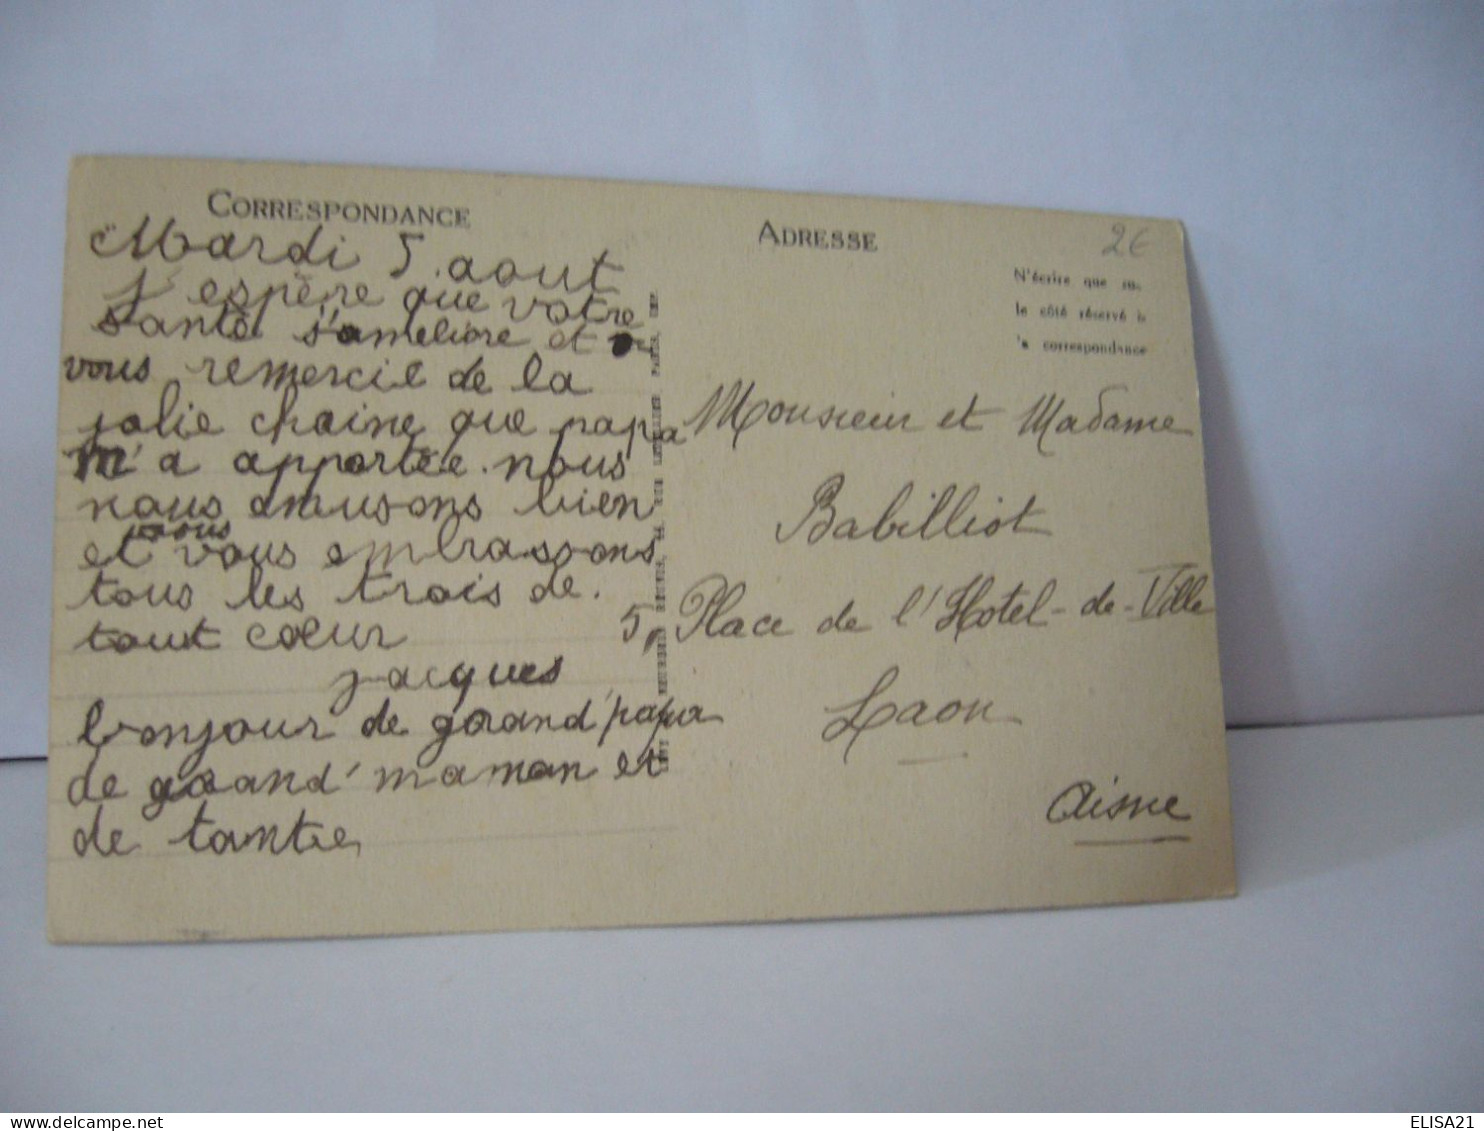 CORRESPONDANCE
Mardi 5. aout
J'espère que votre
santé s'ameliore et
vous remercie de la
jolie chaine que papa
m'a apportée. nous
nous amusons bien
et nous vous embrassons
tous les trois de.
tout cœur
jacques
bonjour de grand'papa
de grand'maman et
de tante
ADRESSE
2€
N'écrire que su
le côté réservé à
la correspondance
Monsieur et Madame
Babilliot
5, Place de l'Hotel-de-Ville
Laon
Aisne
ELISA21